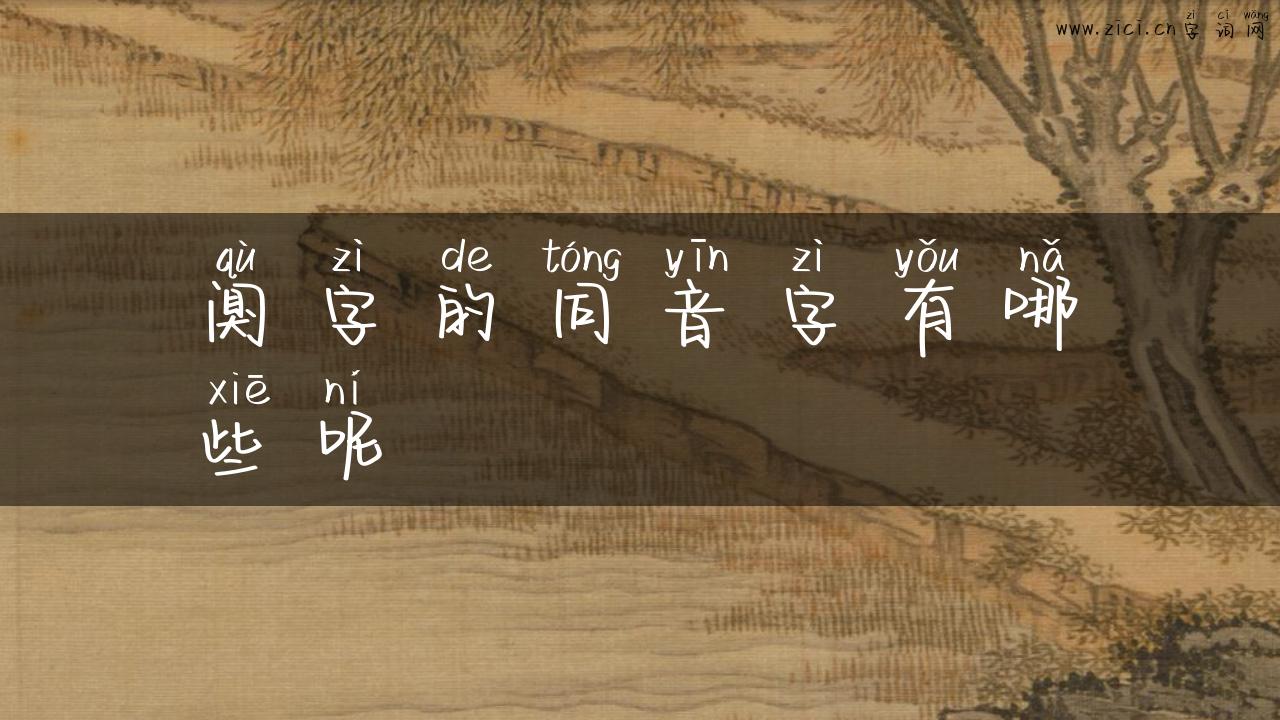 zì cí wǎng
www.zici.cn字词网
qù zì de tóng yīn zì yǒu nǎ
阒字的同音字有哪
xiē ní
些呢